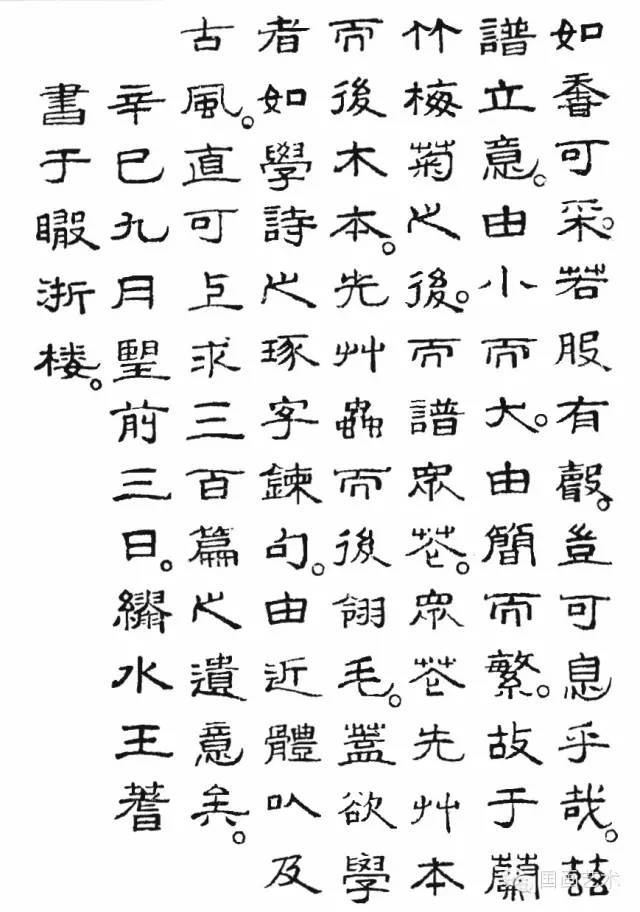 如香可采。若服有。豈可息乎哉。茲
譜立意。由小而大。由簡而繁。故于蘭
竹梅菊之後。而譜眾花。眾花先艸本
而後木本。先艸蟲而後翎毛。蓋欲學
者如學詩之琢字鍊句。由近體以及
古風。直可上求三百篇之遺意矣。
辛巳九月望前三日。繡水王蓍
書于瞰浙楼。
国画艺术